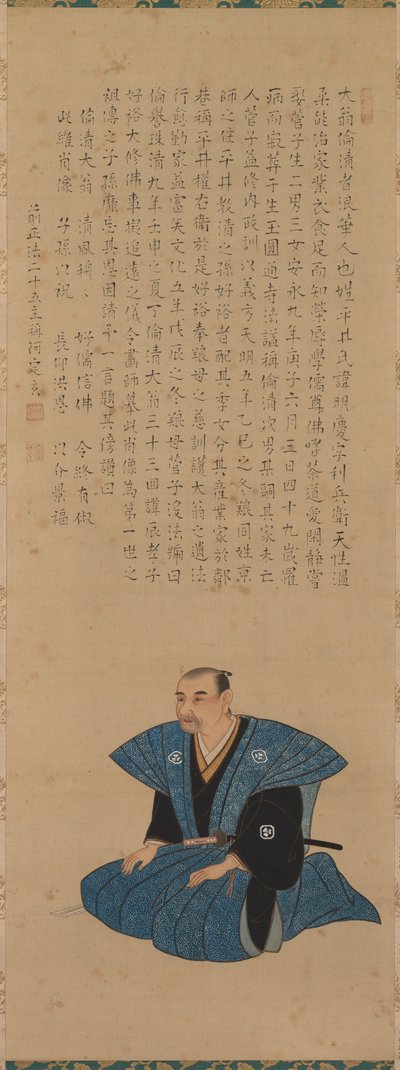 大翁倫清者浪華人也姓平井氏諱明慶字利兵衛天性温
柔能治家業衣食足而知榮辱學儒尊佛嗜茶道愛閑静嘗
娶菅子生二男三女安永九年庚子六月三日四十九歳罹
病而寂葬于生玉圓通寺法謚稱倫清次男某嗣其家未亡
人菅子益修内政訓以義方天明五年乙巳之冬同姓京
師之住平井敦清之孫好裕者配其季女分其産業家於鄰
巷稱平井權右衛於是好裕奉母之慈訓護大翁之遺法
行愈勤家益富矣文化五年戊辰之冬母菅子沒法號曰
倫譽珠清九年壬申之夏丁倫清大翁三十三回諱辰孝子
好裕大修佛事擬追遠之儀令畫師摹此肖像為第一世之
祖傳之子孫靡忘其恩因請予一言題其傍讃曰
倫清大翁 清風穆々 好儒信佛 令終有俶
此雖肖像 子孫以祝 長仰洪恩 以介景福
前正法二十五主稱阿定